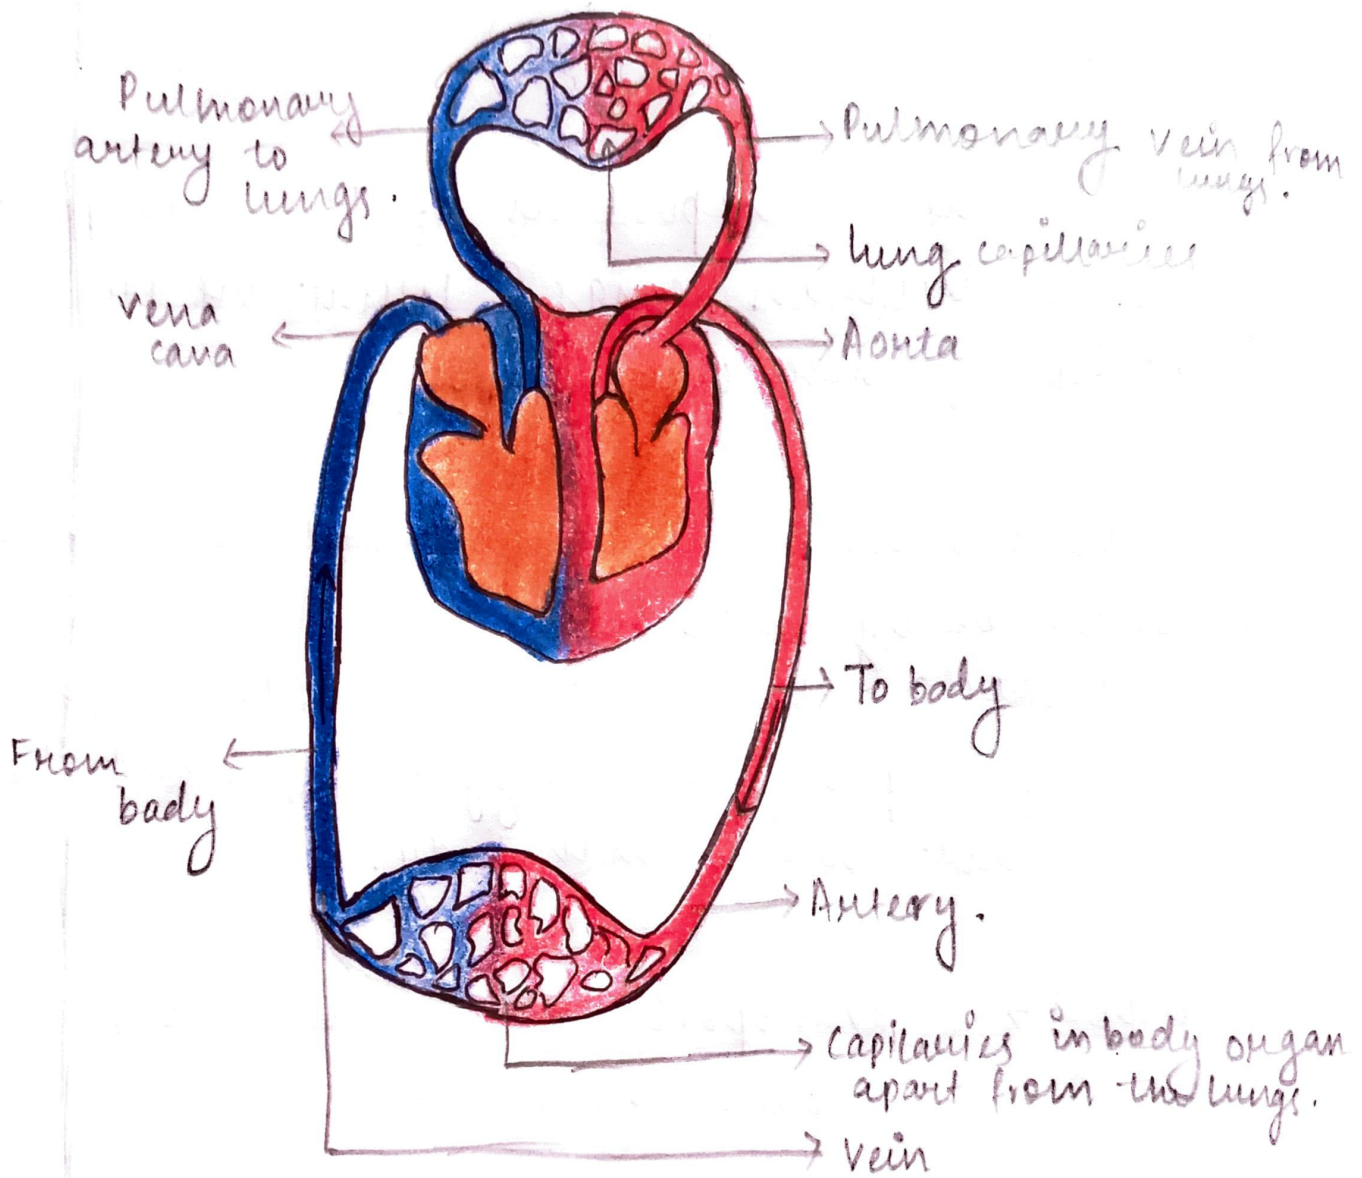 Pulmonary
artery to
lungs.
Pulmonary vein from
lungs.
lung capillaries
Vena
cava
Aorta
To body
From
bady
Artery.
Capilaries in body organ
apart from the lungs.
Vein